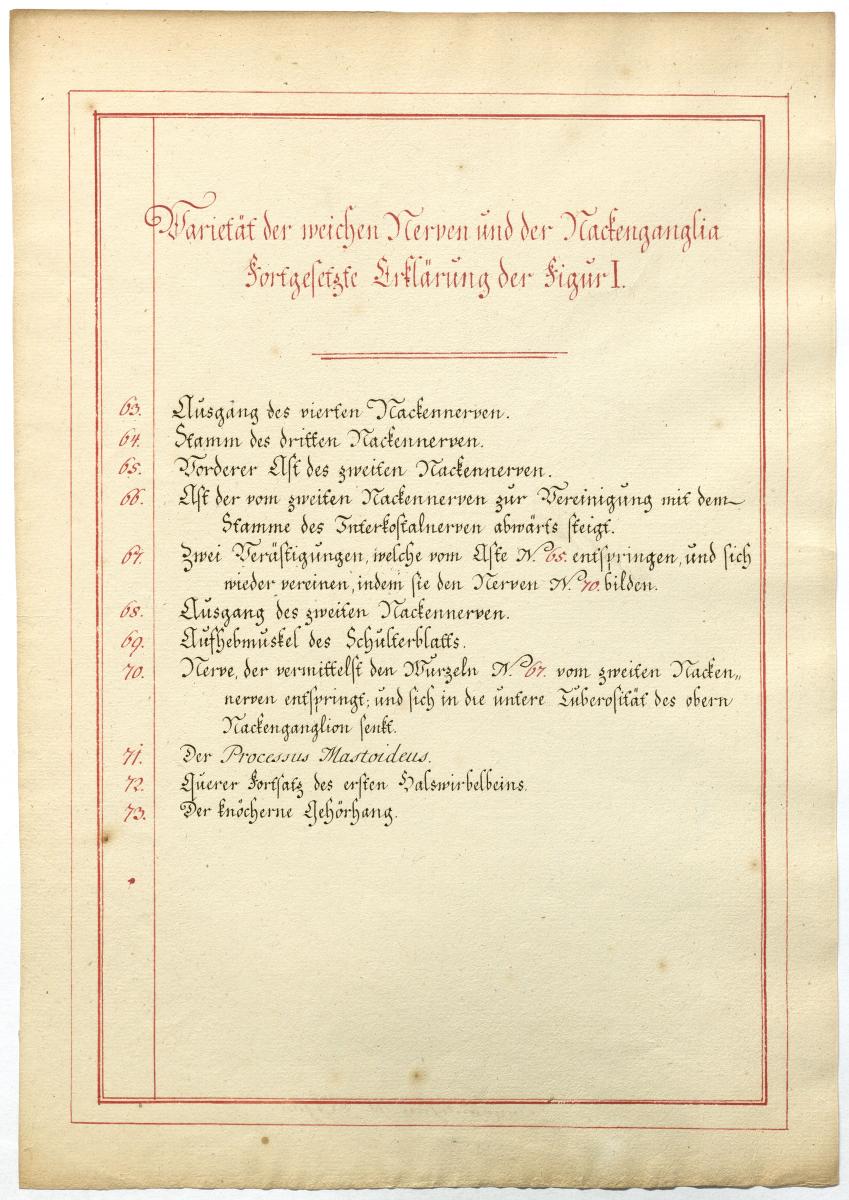 Varietät der weichen Nerven und der Nackenganglia
Fortgesetzte Erklärung der Figur I.
63. Ausgang des vierten Nackennerven.
64. Stamm des dritten Nackennerven.
65. Vorderer Ast des zweiten Nackennerven.
66. Ast der vom zweiten Nackennerven zur Vereinigung mit dem
Stamme des Interkostalnerven abwärts steigt.
67. Zwei Verästigungen, welche vom Aste N.º 65. entspringen, und sich
wieder vereinen, indem sie den Nerven N.º 70. bilden.
68. Ausgang des zweiten Nackennerven.
69. Aufhebmuskel des Schulterblatts.
70. Nerve, der vermittelst den Wurzeln N.º 67. vom zweiten Nacken„
nerven entspringt; und sich in die untere Tuberosität des obern
Nackenganglion senkt.
71. Der Processus Mastoideus.
72. Querer Fortsatz des ersten Halswirbelbeins.
73. Der knöcherne Gehörhang.